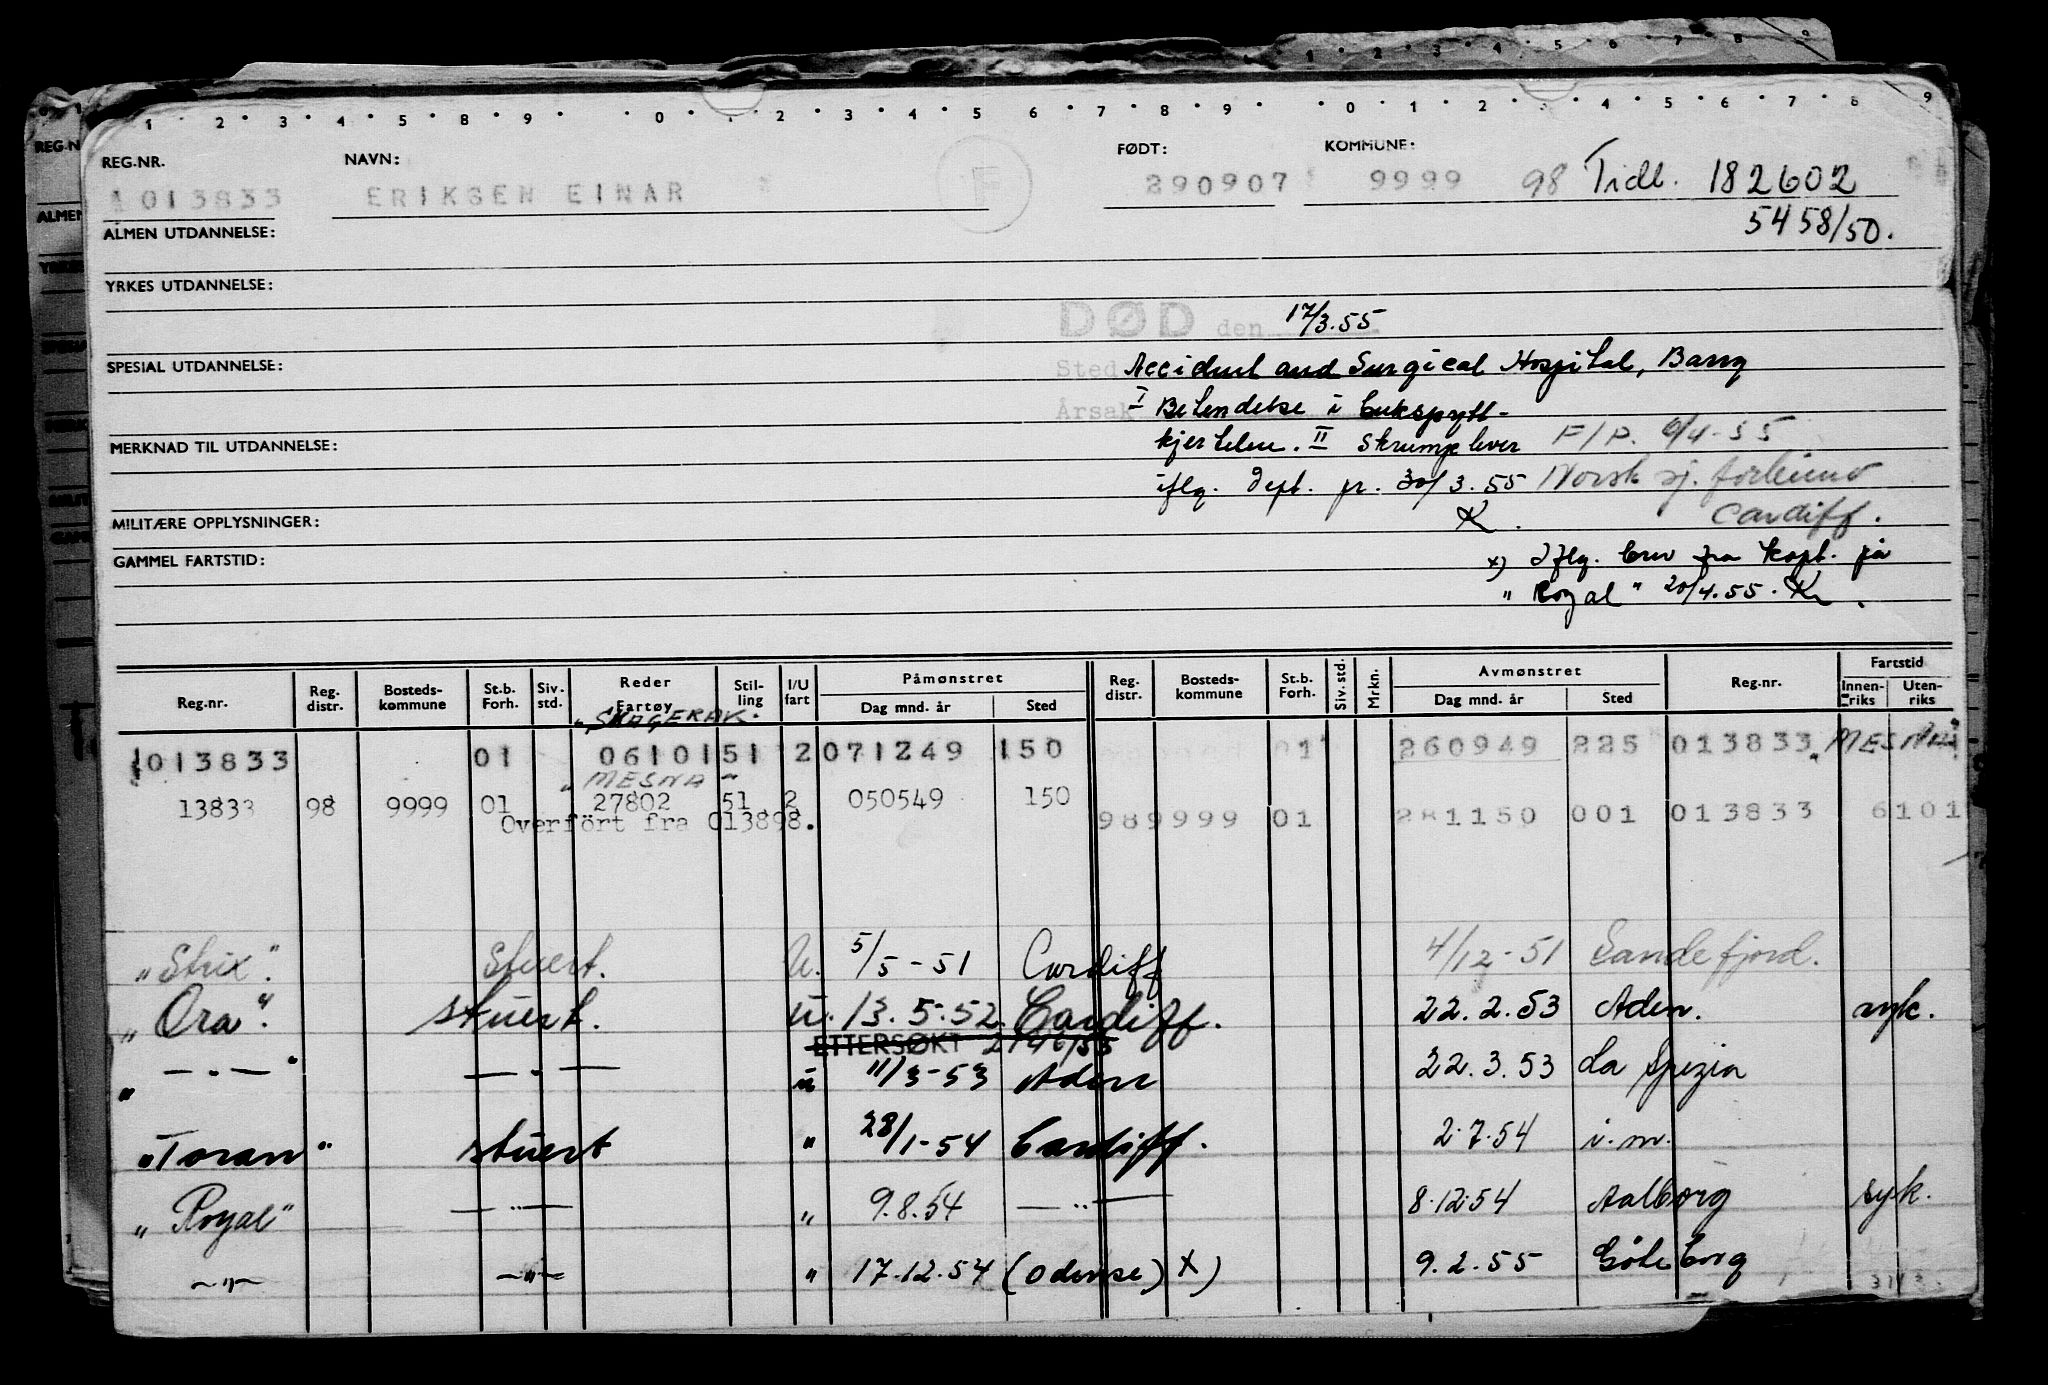 REG.NR. NAVN: FØDT: KOMMUNE:
013833 ERIKSEN EINAR F 290907 9999 98 Tidl. 182602
ALMEN UTDANNELSE: 5458/50.
YRKES UTDANNELSE:
DØD den 17/3.55
SPESIAL UTDANNELSE: Sted Accident and Surgical Hospital, Barry
Årsak I Betendelse i bukspytt-
MERKNAD TIL UTDANNELSE: kjertelen. II Skrumplever F/P. 6/4-55
iflg. dept. pr. 30/3.55 Norsk sj.
MILITÆRE OPPLYSNINGER: K. Cardiff.
GAMMEL FARTSTID: x) Iflg. brev fra kapt. på
"Royal" 20/4.55. K.
Reg.nr. Reg. distr. Bosteds-kommune St.b. Forh. Siv. std. Reder Fartøy Stil-ling I/U fart Påmønstret Dag mnd. år Sted Reg. distr. Bosteds-kommune St.b. Forh. Siv. std. Mrkn. Avmønstret Dag mnd. år Sted Reg.nr. Fartstid Innen-riks Uten-riks
"SKAGERAK."
013833 01 06101 51 2 071249 150 01 260949 225 013833 "MESNA"
"MESNA"
13833 98 9999 01 27802 51 2 050549 150
Overført fra 013898. 98 9999 01 281150 001 013833 6101
"Strix". Stuert. U. 5/5-51 Cardiff 4/12-51 Sandefjord.
"Ora". stuert. u. 13.5.52. Cardiff. 22.2.53 Aden. syk.
ETTERSØKT
" — " — " — " — u 11/3-53 Aden 22.3.53 La Spezia
"Toran" stuert " 28/1-54 Cardiff. 2.7.54 i.m.
"Royal" — " — " 9.8.54 — " — 8.12.54 Aalborg syk.
— " — — " — " 17.12.54 (Odense) x) 9.2.55 Göteborg